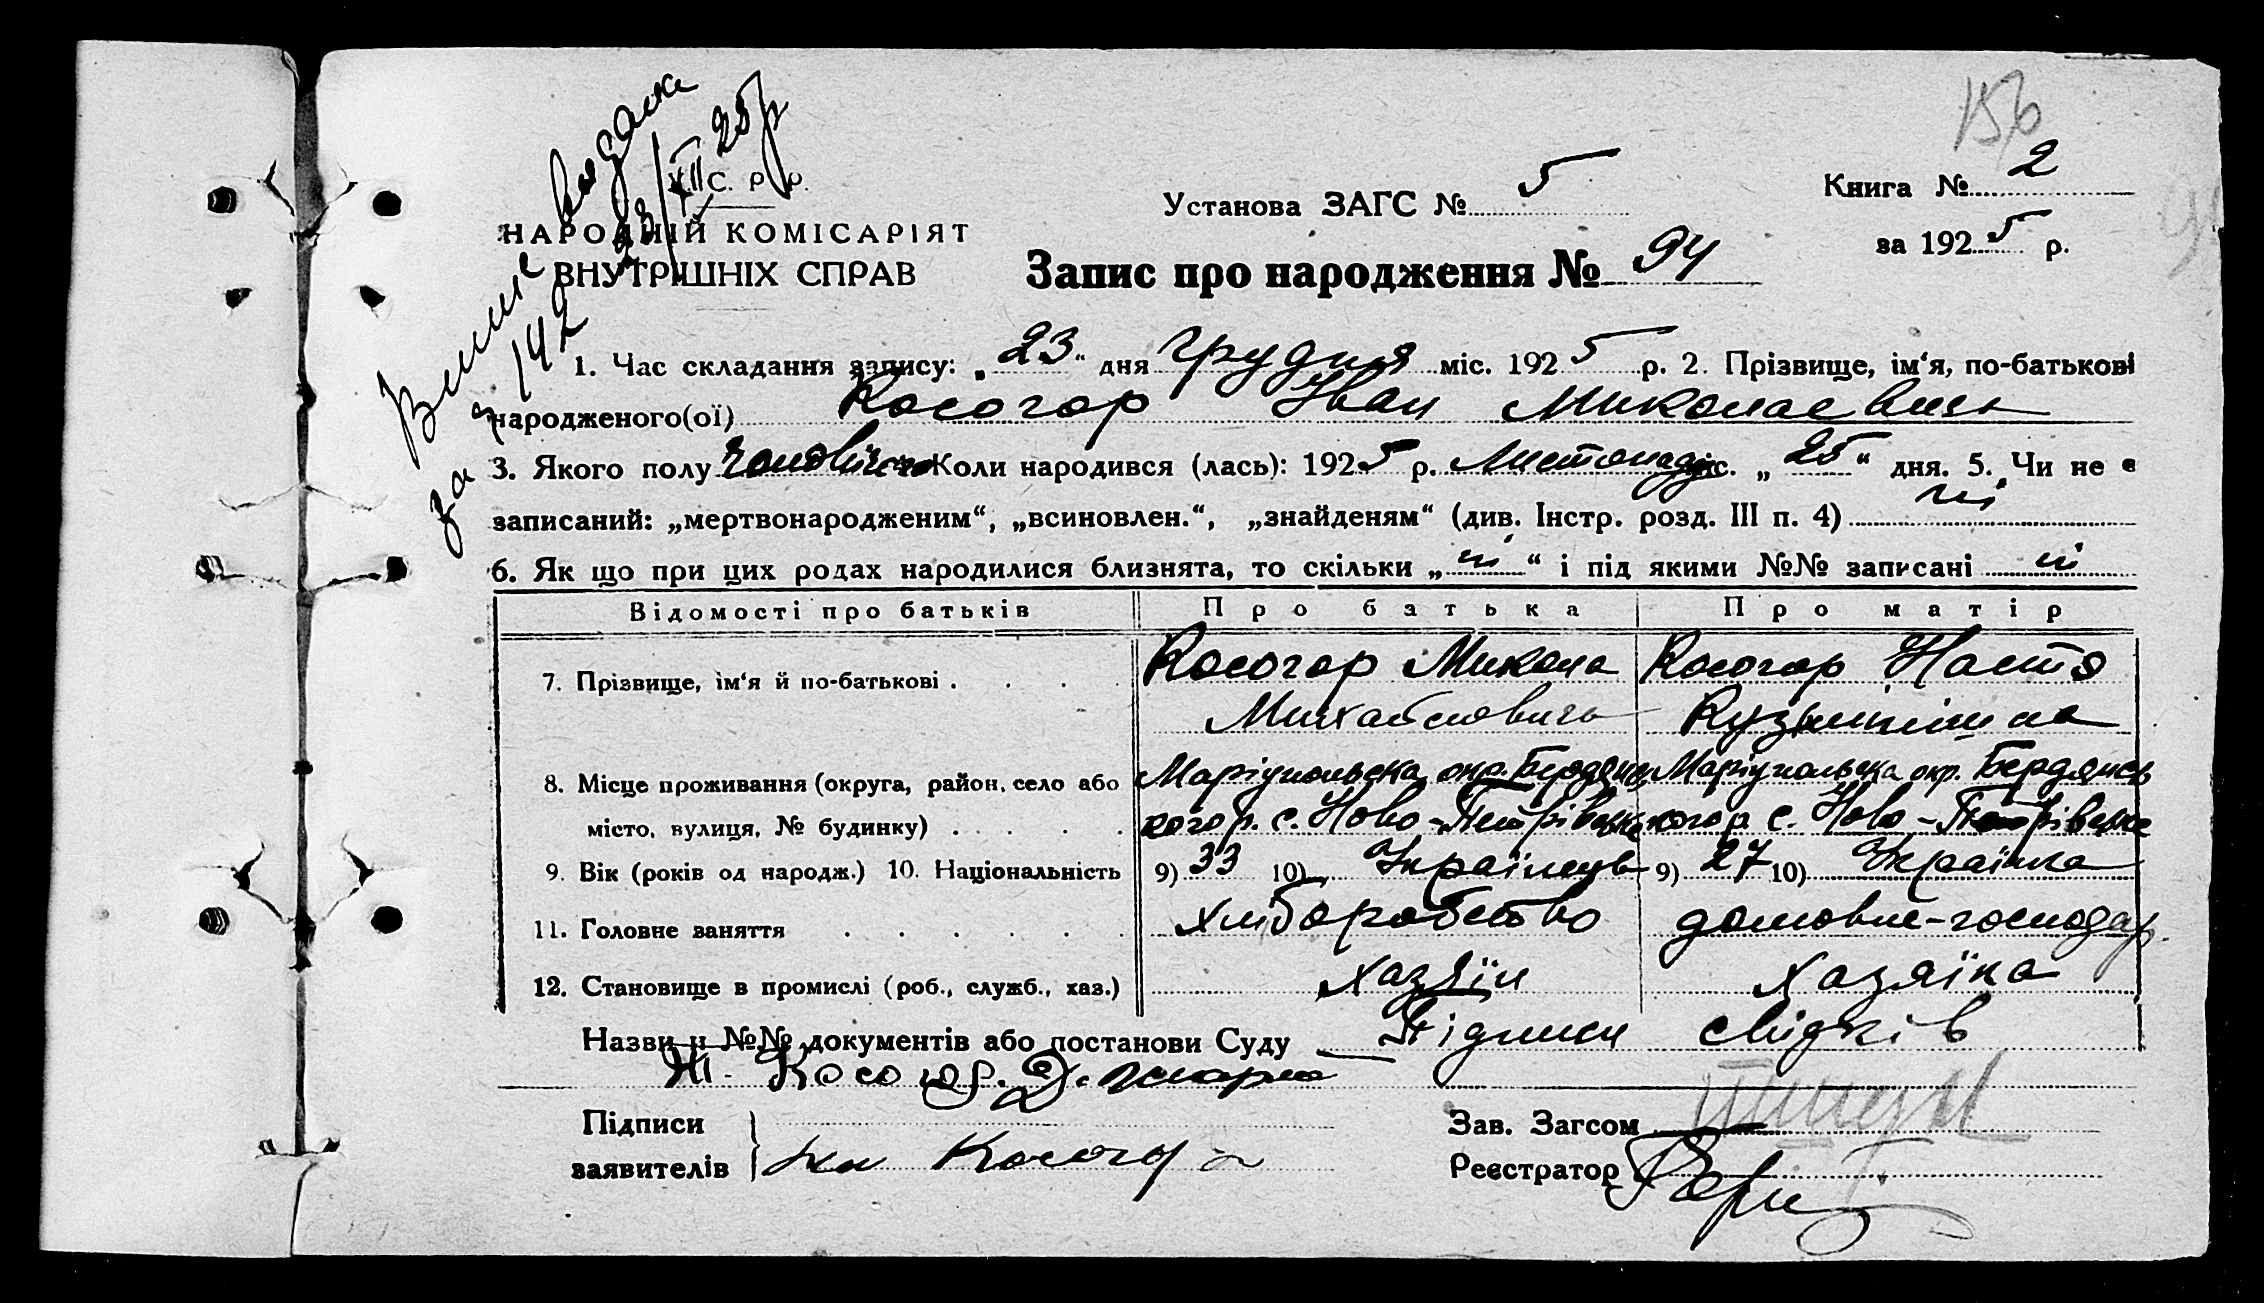 156
Випис видана
за № 142 23/XII 25р
У. С. Р. Р.
НАРОДНІЙ КОМІСАРІЯТ
ВНУТРІШНІХ СПРАВ
Установа ЗАГС № 5
Книга № 2
за 1925 р.
Запис про народження № 94
1. Час складання запису: „23“ дня грудня міс. 1925 р. 2. Прізвище, ім‘я, по-батькові
народженого(ої) Косогор Іван Миколаевичь
3. Якого полу Коли народився (лась): 1925 р. Листопада міс. „25“ дня. 5. Чи не є
записаний: „мертвонародженим“, „всиновлен.“, „знайденям“ (див. Інстр. розд. III п. 4) ні
6. Як що при цих родах народилися близнята, то скільки „ні“ і під якими №№ записані ні
Відомості про батьків Про батька Про матір
7. Прізвище, ім‘я й по-батькові . . . . Косогор Микола Косогор Настя
Михайловичь Кузьминішна
8. Місце проживання (округа, район, село або Маріупольська окр. Бердянсь Маріупольська окр. Бердянсь
місто, вулиця, № будинку) . . . . кого р. с. Ново-Петрівське кого р. с. Ново-Петрівське
9. Вік (років од народж.) 10. Національність 9) 33 10) Українець 9) 27 10) Українка
11. Головне заняття . . . . . . хліборобство домовне-господар.
12. Становище в промислі (роб., служб., хаз.) хазяїн хазяїка
Назви й №№ документів або постанови Суду — Підписи свідків
Косогор.
Підписи
заявителів Косогор
Зав. Загсом
Реєстратор